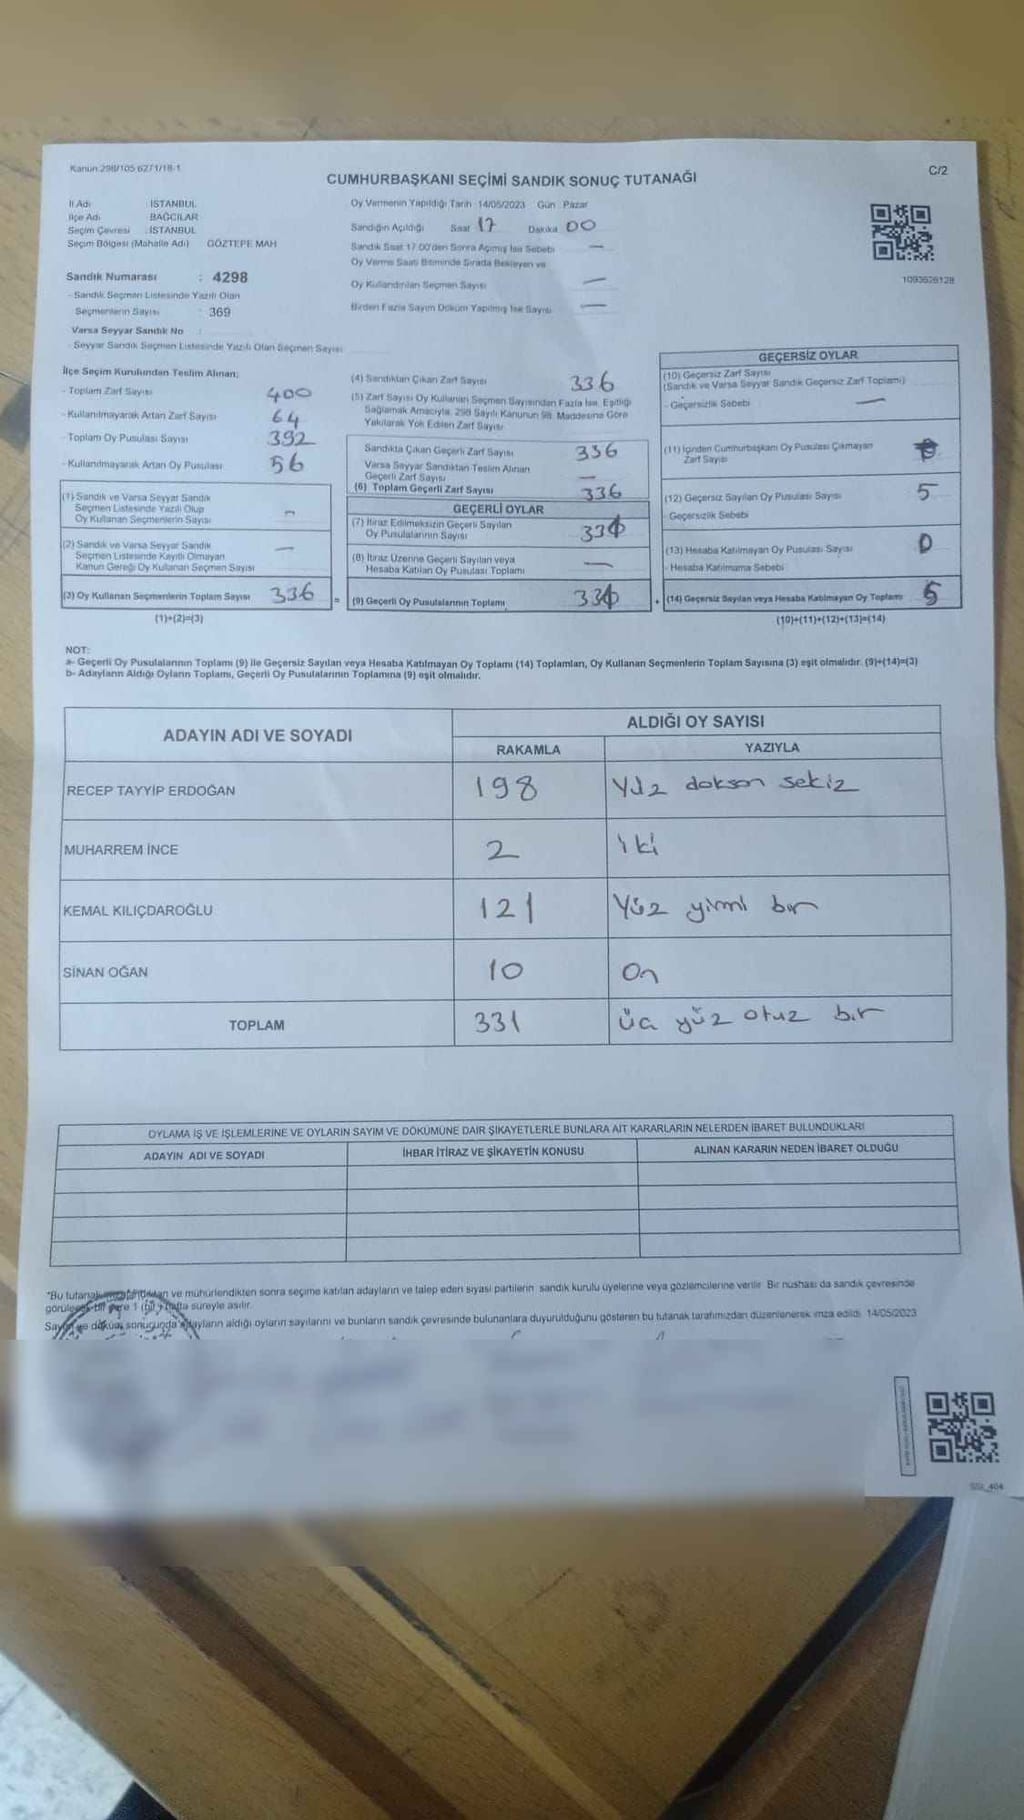 Kanun:298/105 6271/18-1
C/2
CUMHURBAŞKANI SEÇİMİ SANDIK SONUÇ TUTANAĞI
İl Adı : İSTANBUL
İlçe Adı : BAĞCILAR
Seçim Çevresi : İSTANBUL
Seçim Bölgesi (Mahalle Adı) GÖZTEPE MAH
Sandık Numarası : 4298
- Sandık Seçmen Listesinde Yazılı Olan
Seçmenlerin Sayısı : 369
Varsa Seyyar Sandık No :
- Seyyar Sandık Seçmen Listesinde Yazılı Olan Seçmen Sayısı
Oy Vermenin Yapıldığı Tarih :14/05/2023 Gün : Pazar
Sandığın Açıldığı Saat 17 Dakika 00
Sandık Saat 17:00'den Sonra Açımış İse Sebebi —
Oy Verme Saati Bitiminde Sırada Bekleyen ve
Oy Kullandırılan Seçmen Sayısı —
Birden Fazla Sayım Döküm Yapılmış İse Sayısı —
1093626128
İlçe Seçim Kurulundan Teslim Alınan;
- Toplam Zarf Sayısı 400
- Kullanılmayarak Artan Zarf Sayısı 64
- Toplam Oy Pusulası Sayısı 392
- Kullanılmayarak Artan Oy Pusulası 56
(1) Sandık ve Varsa Seyyar Sandık
Seçmen Listesinde Yazılı Olup
Oy Kullanan Seçmenlerin Sayısı —
(2) Sandık ve Varsa Seyyar Sandık
Seçmen Listesinde Kayıtlı Olmayan
Kanun Gereği Oy Kullanan Seçmen Sayısı —
(3) Oy Kullanan Seçmenlerin Toplam Sayısı 336
(1)+(2)=(3)
(4) Sandıktan Çıkan Zarf Sayısı 336
(5) Zarf Sayısı Oy Kullanan Seçmen Sayısından Fazla İse, Eşitliği
Sağlamak Amacıyla, 298 Sayılı Kanunun 98. Maddesine Göre
Yakılarak Yok Edilen Zarf Sayısı
Sandıkta Çıkan Geçerli Zarf Sayısı 336
Varsa Seyyar Sandıktan Teslim Alınan
Geçerli Zarf Sayısı —
(6) Toplam Geçerli Zarf Sayısı 336
GEÇERLİ OYLAR
(7) İtiraz Edilmeksizin Geçerli Sayılan
Oy Pusulalarının Sayısı
(8) İtiraz Üzerine Geçerli Sayılan veya
Hesaba Katılan Oy Pusulası Toplamı —
= (9) Geçerli Oy Pusulalarının Toplamı
GEÇERSİZ OYLAR
(10) Geçersiz Zarf Sayısı
(Sandık ve Varsa Seyyar Sandık Geçersiz Zarf Toplamı)
- Geçersizlik Sebebi —
(11) İçinden Cumhurbaşkanı Oy Pusulası Çıkmayan
Zarf Sayısı
(12) Geçersiz Sayılan Oy Pusulası Sayısı 5
- Geçersizlik Sebebi
(13) Hesaba Katılmayan Oy Pusulası Sayısı 0
- Hesaba Katılmama Sebebi
+ (14) Geçersiz Sayılan veya Hesaba Katılmayan Oy Toplamı 5
(10)+(11)+(12)+(13)=(14)
NOT:
a- Geçerli Oy Pusulalarının Toplamı (9) ile Geçersiz Sayılan veya Hesaba Katılmayan Oy Toplamı (14) Toplamları, Oy Kullanan Seçmenlerin Toplam Sayısına (3) eşit olmalıdır. (9)+(14)=(3)
b- Adayların Aldığı Oyların Toplamı, Geçerli Oy Pusulalarının Toplamına (9) eşit olmalıdır.
ADAYIN ADI VE SOYADI
ALDIĞI OY SAYISI
RAKAMLA YAZIYLA
RECEP TAYYİP ERDOĞAN 198 Yüz doksan sekiz
MUHARREM İNCE 2 iki
KEMAL KILIÇDAROĞLU 121 Yüz yirmi bir
SİNAN OĞAN 10 On
TOPLAM 331 üç yüz otuz bir
OYLAMA İŞ VE İŞLEMLERİNE VE OYLARIN SAYIM VE DÖKÜMÜNE DAİR ŞİKAYETLERLE BUNLARA AİT KARARLARIN NELERDEN İBARET BULUNDUKLARI
ADAYIN ADI VE SOYADI İHBAR İTİRAZ VE ŞİKAYETİN KONUSU ALINAN KARARIN NEDEN İBARET OLDUĞU
*Bu tutanak ve mühürlendikten sonra seçime katılan adayların ve talep eden siyasi partilerin sandık kurulu üyelerine veya gözlemcilerine verilir. Bir nüshası da sandık çevresinde
görülecek bir yere 1 (bir) hafta süreyle asılır.
Sayım ve döküm sonucunda adayların aldığı oyların sayılarını ve bunların sandık çevresinde bulunanlara duyurulduğunu gösteren bu tutanak tarafımızdan düzenlenerek imza edildi. 14/05/2023